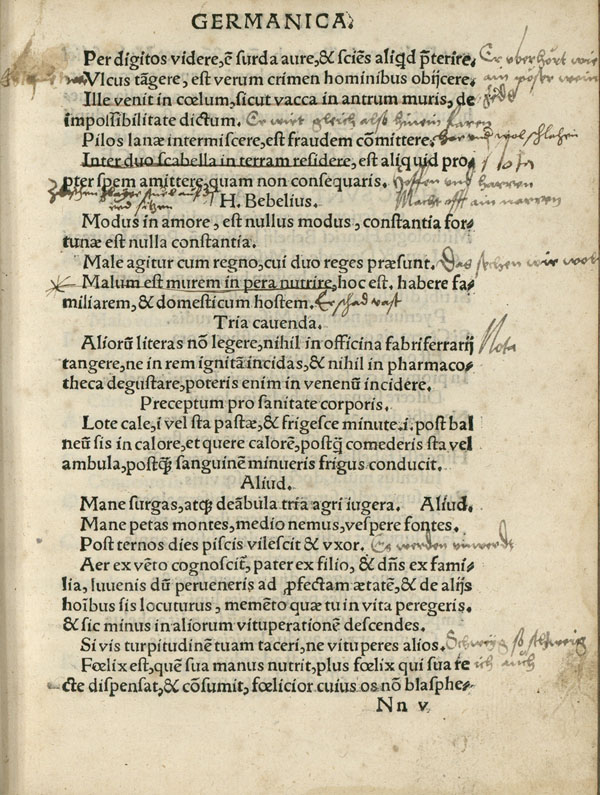 GERMANICA.
Per digitos videre, ē surda aure, & sciēs aliqd p̄terire. Er vberhört wie
Vlcus tāgere, est verum crimen hominibus obijcere. ain pöser wein
Ille venit in cœlum, sicut vacca in antrum muris, de
impossibilitate dictum. Er wirt gleich also hinein faren
Pilos lanæ intermiscere, est fraudem cōmittere. har vnd wol schlahen
Inter duo scabella in terram residere, est aliquid pro Nota
pter spem amittere, quam non consequaris. Hoffen vnd harren
H. Bebelius. Macht offt ain narren
Modus in amore, est nullus modus, constantia for-
tunæ est nulla constantia.
Male agitur cum regno, cui duo reges præsunt. Das sechen wir wol
Malum est murem in pera nutrire, hoc est. habere fa-
miliarem, & domesticum hostem. Er schad vast
Tria cauenda.
Aliorū literas nō legere, nihil in officina fabriferrarij Nota
tangere, ne in rem ignitā incidas, & nihil in pharmaco-
theca degustare, poteris enim in venenū incidere.
Preceptum pro sanitate corporis.
Lote cale, i vel sta pastæ, & frigesce minute .i. post bal
neū sis in calore, et quere calorē, postq̄ comederis sta vel
ambula, postq̄ sanguinē minueris frigus conducit.
Aliud.
Mane surgas, atq; deābula tria agri iugera. Aliud.
Mane petas montes, medio nemus, vespere fontes.
Post ternos dies piscis vilescit & vxor. Es werden vnwerds
Aer ex vēto cognoscit, pater ex filio, & dn̄s ex fami-
lia, Iuuenis dū perueneris ad ꝓfectam ætatē, & de alijs
hoībus sis locuturus, memēto quæ tu in vita peregeris.
& sic minus in aliorum vituperationē descendes.
Si vis turpitudinē tuam taceri, ne vituperes alios. Schweyg so schweig
Fœlix est, quē sua manus nutrit, plus fœlix qui sua re ich auch
cte dispensat, & cōsumit, fœlicior cuius os nō blasphe-
Nn v